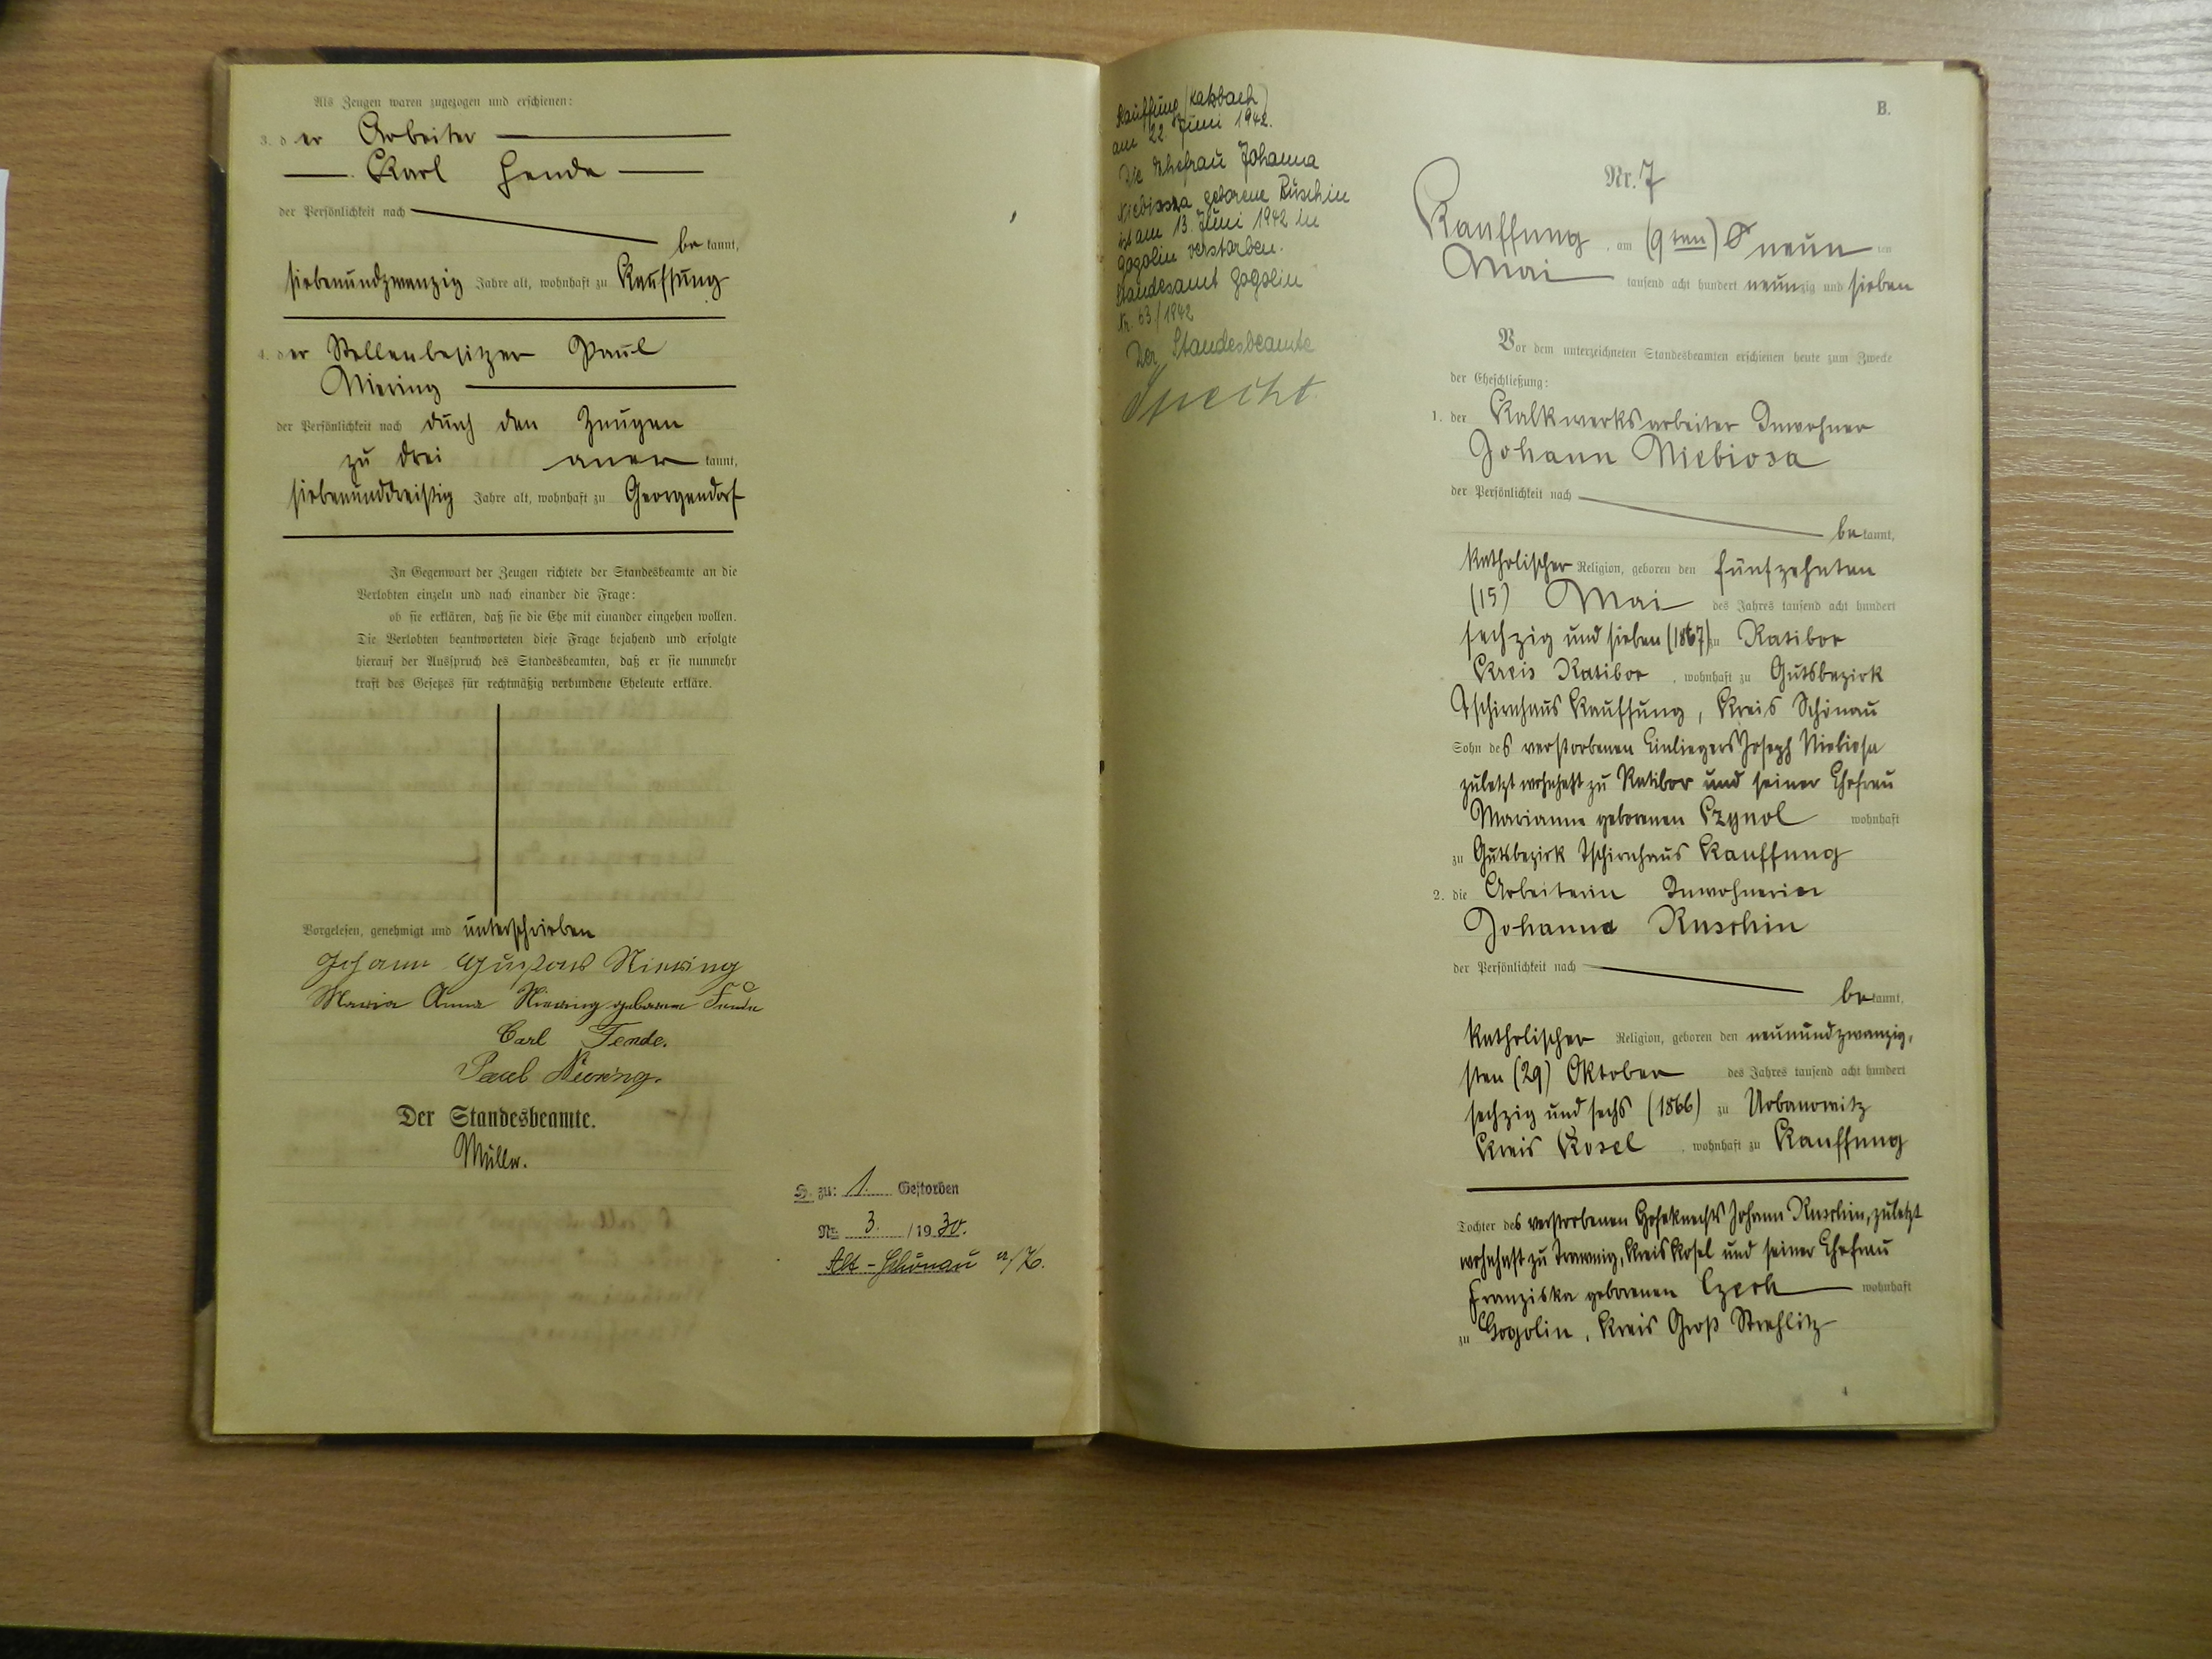 Als Zeugen waren zugezogen und erschienen:
3. der Arbeiter
Karl Hende
der Persönlichkeit nach
be kannt,
siebenundzwanzig Jahre alt, wohnhaft zu Kauffung
4. der Stellenbesitzer Paul
Niering
der Persönlichkeit nach durch den Zeugen
zu drei aner kannt,
siebenunddreißig Jahre alt, wohnhaft zu Georgendorf
In Gegenwart der Zeugen richtete der Standesbeamte an die
Verlobten einzeln und nach einander die Frage:
ob sie erklären, daß sie die Ehe mit einander eingehen wollen.
Die Verlobten beantworteten diese Frage bejahend und erfolgte
hierauf der Ausspruch des Standesbeamten, daß er sie nunmehr
kraft des Gesetzes für rechtmäßig verbundene Eheleute erkläre.
Vorgelesen, genehmigt und unterschrieben
Johann Gustav Niering
Maria Anna Niering geborene
Carl
Paul Niering.
Der Standesbeamte.
Müller.
H. zu: 1. Gestorben
Nr. 3 / 1930.
Alt-Schönau a/K.
Kauffung (Katzbach)
am 22. Juni 1942.
Die Ehefrau Johanna
geborene Ruschin
ist am 13. Juni 1942 in
Gogolin verstorben.
Standesamt Gogolin
Nr. 53/1942
Der Standesbeamte
Specht.
B.
Nr. 7
Kauffung, am (9ten) neun ten
Mai tausend acht hundert neunzig und sieben
Vor dem unterzeichneten Standesbeamten erschienen heute zum Zwecke
der Eheschließung:
1. der Kalkwerksarbeiter Inwohner
Johann Niebiosa
der Persönlichkeit nach
be kannt,
katholischer Religion, geboren den fünfzehnten
(15) Mai des Jahres tausend acht hundert
sechzig und sieben (1867) zu Ratibor
Kreis Ratibor, wohnhaft zu Gutsbezirk
Tschirnhaus Kauffung, Kreis Schönau
Sohn des verstorbenen Einliegers Joseph Niebiosa
zuletzt wohnhaft zu Ratibor und seiner Ehefrau
Marianne geborenen wohnhaft
zu Gutsbezirk Tschirnhaus Kauffung
2. die Arbeiterin Inwohnerin
Johanna Ruschin
der Persönlichkeit nach
be kannt,
katholischer Religion, geboren den neunundzwanzig-
sten (29) Oktober des Jahres tausend acht hundert
sechzig und sechs (1866) zu Urbanowitz
Kreis Kosel, wohnhaft zu Kauffung
Tochter des verstorbenen Hofeknechts Johann Ruschin, zuletzt
wohnhaft zu Kreis Kosel und seiner Ehefrau
Franziska geborenen Czech wohnhaft
zu Gogolin, Kreis Groß Strehlitz
4